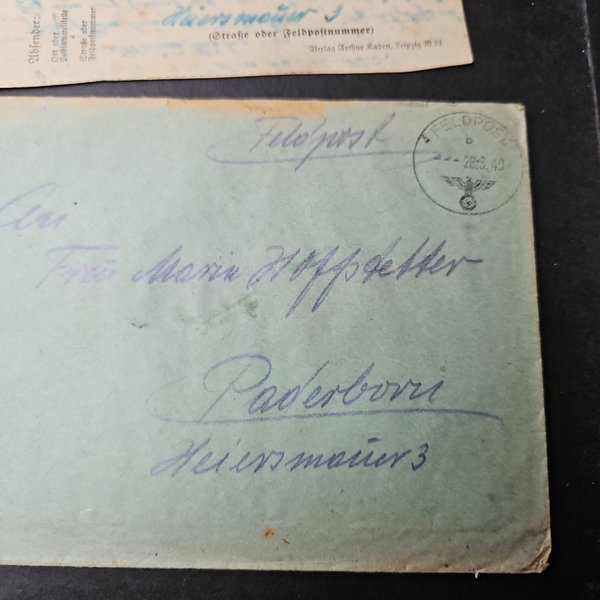 Heiersmauer 3
(Straße oder Feldpostnummer)
Verlag Arthur Kaden, Leipzig W 32
Absender:
Ort oder
Postsammelstelle
Straße oder
Feldpostnummer
Feldpost
FELDPOST
b
28.3.40
An
Frau Maria Hoffstetter
Paderborn
Heiersmauer 3